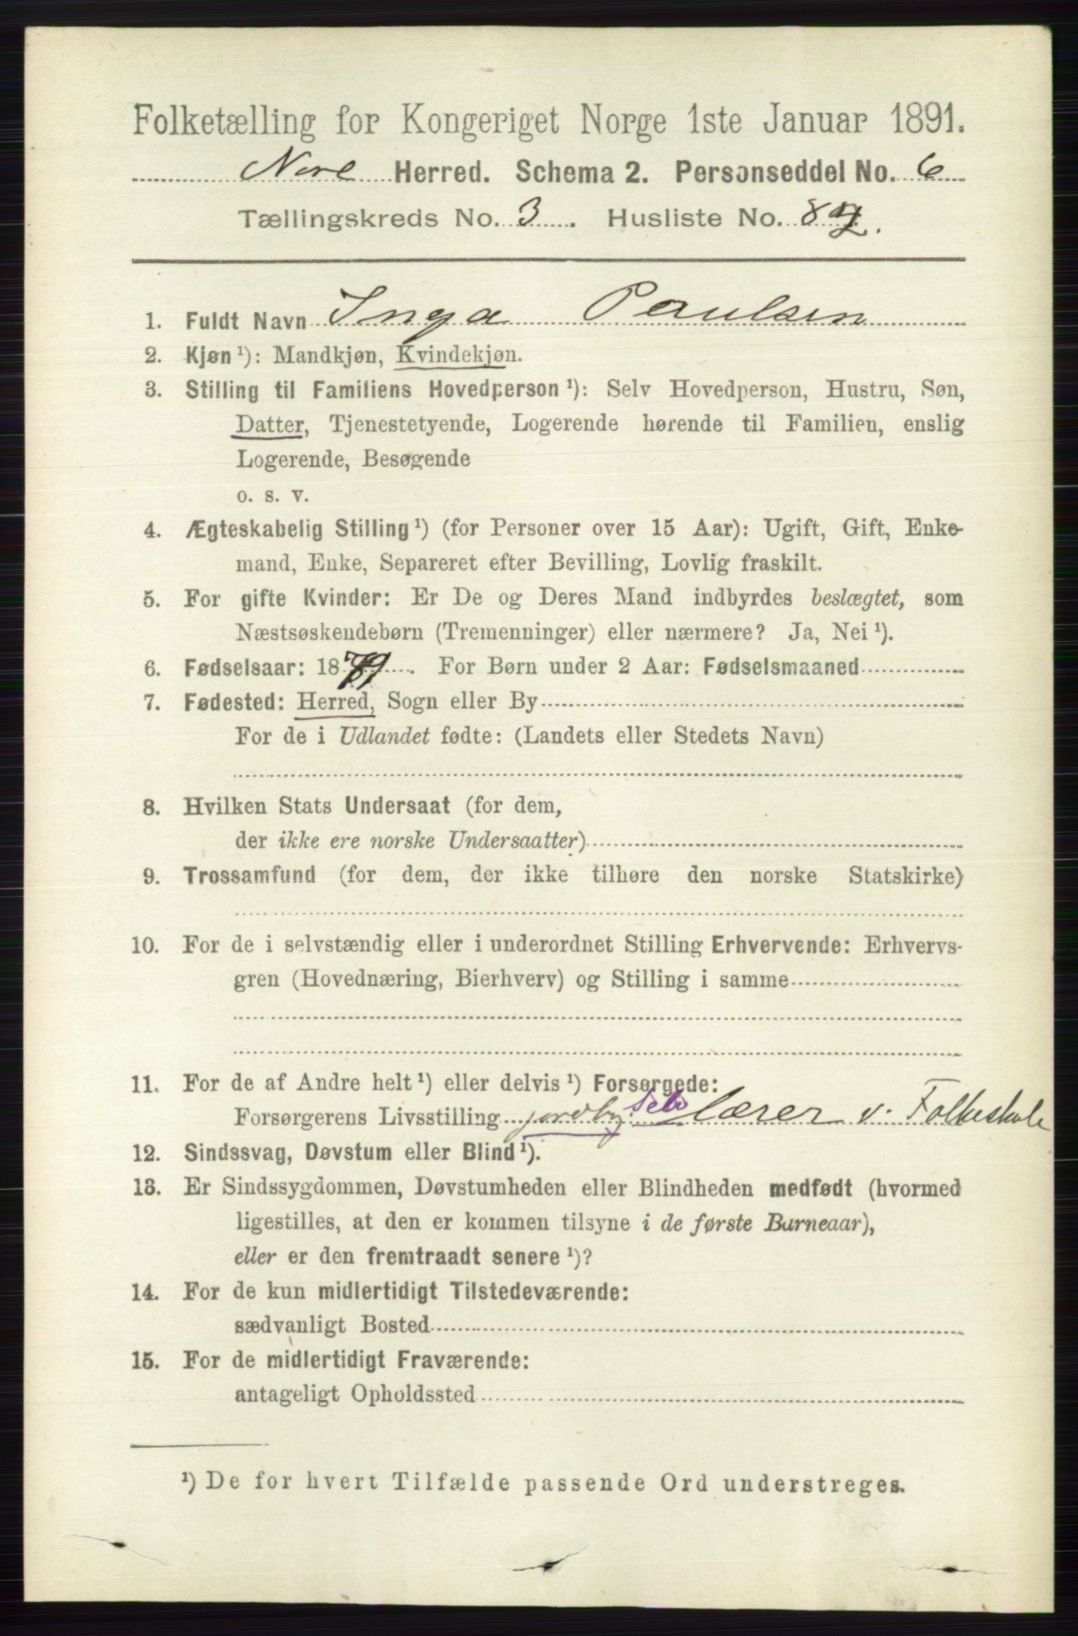 Folketælling for Kongeriget Norge 1ste Januar 1891.
Nore Herred. Schema 2. Personseddel No. 6
Tællingskreds No. 3. Husliste No. 82.
1. Fuldt Navn Inga Paulsen
2. Kjøn ¹): Mandkjøn, Kvindekjøn.
3. Stilling til Familiens Hovedperson ¹): Selv Hovedperson, Hustru, Søn,
Datter, Tjenestetyende, Logerende hørende til Familien, enslig
Logerende, Besøgende
o. s. v.
4. Ægteskabelig Stilling ¹) (for Personer over 15 Aar): Ugift, Gift, Enke-
mand, Enke, Separeret efter Bevilling, Lovlig fraskilt.
5. For gifte Kvinder: Er De og Deres Mand indbyrdes beslægtet, som
Næstsøskendebørn (Tremenninger) eller nærmere? Ja, Nei ¹).
6. Fødselsaar: 1879. For Børn under 2 Aar: Fødselsmaaned
7. Fødested: Herred, Sogn eller By
For de i Udlandet fødte: (Landets eller Stedets Navn)
8. Hvilken Stats Undersaat (for dem,
der ikke ere norske Undersaatter)
9. Trossamfund (for dem, der ikke tilhøre den norske Statskirke)
10. For de i selvstændig eller i underordnet Stilling Erhvervende: Erhvervs-
gren (Hovednæring, Bierhverv) og Stilling i samme
11. For de af Andre helt ¹) eller delvis ¹) Forsørgede:
Forsørgerens Livsstilling jordbg. Selv lærer v. Folkeskole
12. Sindssvag, Døvstum eller Blind ¹).
13. Er Sindssygdommen, Døvstumheden eller Blindheden medfødt (hvormed
ligestilles, at den er kommen tilsyne i de første Barneaar),
eller er den fremtraadt senere ¹)?
14. For de kun midlertidigt Tilstedeværende:
sædvanligt Bosted
15. For de midlertidigt Fraværende:
antageligt Opholdssted
¹) De for hvert Tilfælde passende Ord understreges.